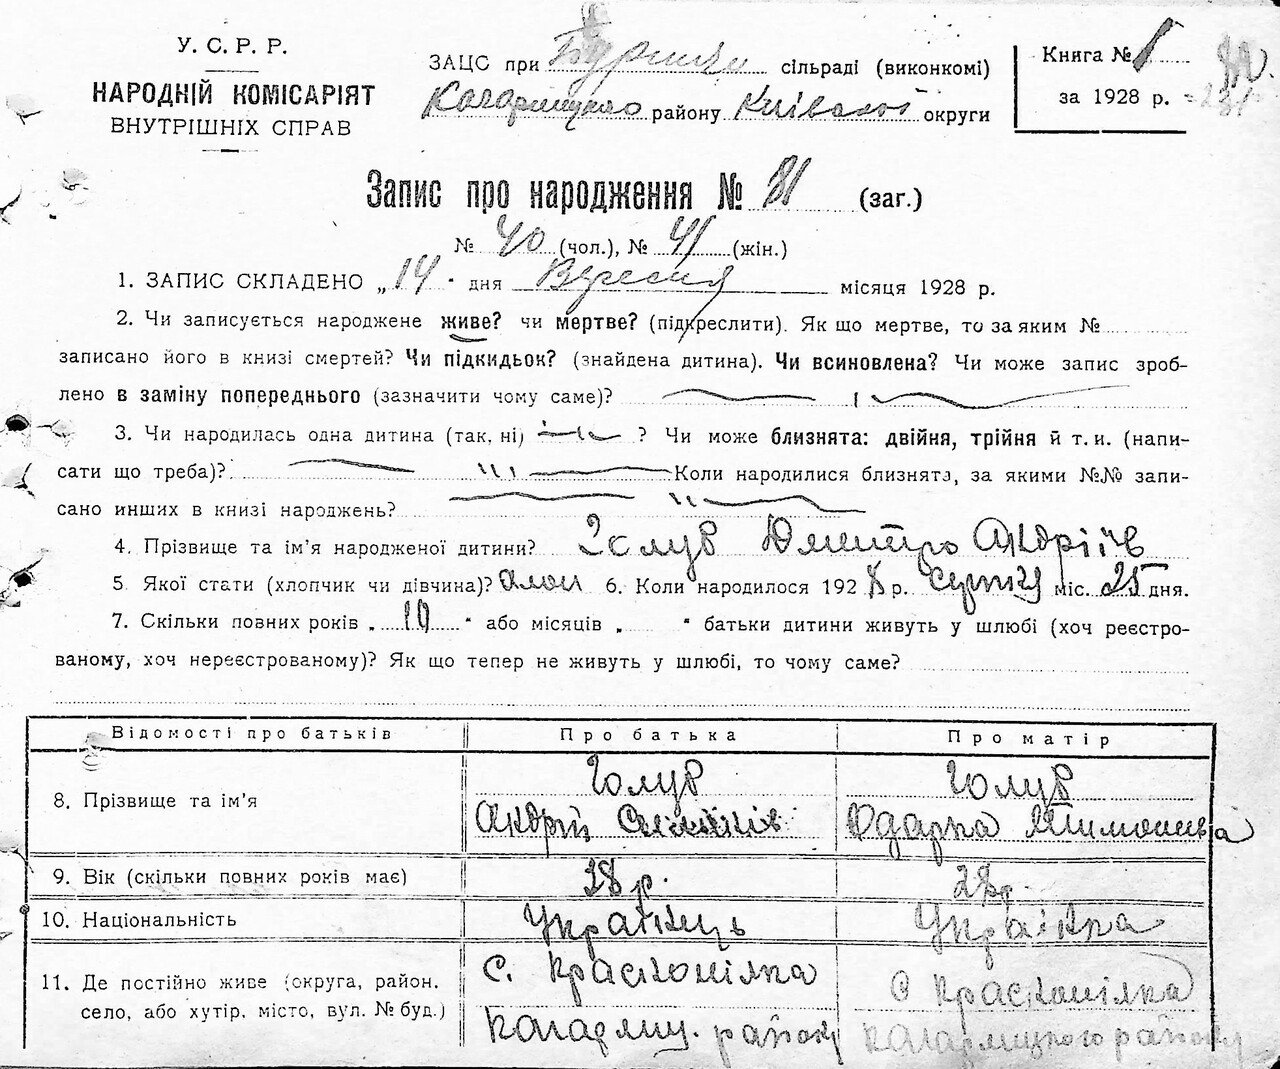 У. С. Р. Р.
НАРОДНІЙ КОМІСАРІЯТ
ВНУТРІШНІХ СПРАВ
ЗАЦС при сільраді (виконкомі)
Кагарлицького району Київської округи
Книга № 1
за 1928 р.
Запис про народження № 81 (заг.)
№ 40 (чол.), № 41 (жін.)
1. ЗАПИС СКЛАДЕНО „ 14 " дня Вересня місяця 1928 р.
2. Чи записується народжене живе? чи мертве? (підкреслити). Як що мертве, то за яким №
записано його в книзі смертей? Чи підкидьок? (знайдена дитина). Чи всиновлена? Чи може запис зроб-
лено в заміну попереднього (зазначити чому саме)?
3. Чи народилась одна дитина (так, ні) ? Чи може близнята: двійня, трійня й т. и. (напи-
сати що треба)? Коли народилися близнята, за якими №№ запи-
сано инших в книзі народжень?
4. Прізвище та ім'я народженої дитини? Голуб Дмитро Андріїв
5. Якої стати (хлопчик чи дівчина)? 6. Коли народилося 192 8 р. Серпня міс. 25 дня.
7. Скільки повних років „ 10 " або місяців „ " батьки дитини живуть у шлюбі (хоч реєстро-
ваному, хоч нереєстрованому)? Як що тепер не живуть у шлюбі, то чому саме?
Відомості про батьків Про батька Про матір
8. Прізвище та ім'я Голуб Голуб
Андрій Одарка Тимошева
9. Вік (скільки повних років має) 28 р. 28 р.
10. Національність Українець Українка
11. Де постійно живе (округа, район, с. Краснопілка с Краснопілка
село, або хутір, місто, вул. № буд.) Кагарлиц. району Кагарлицкого району